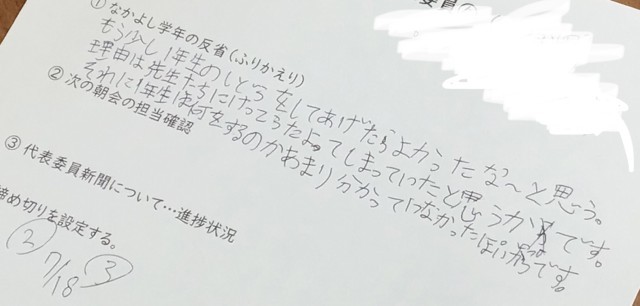 委員の
① なかよし学年の反省(ふりかえり)
もう少し1年生のしどうをしてあげたらよかったな〜と思いう。
理由は先生たちにけってうたよってしまっていったと思うからです。
それに1年生は何をするのかあまり分かっていなかったぽいからです。
② 次の朝会の担当確認
③ 代表委員新聞について…進捗状況
締め切りを設定する。
② 7/18 ③